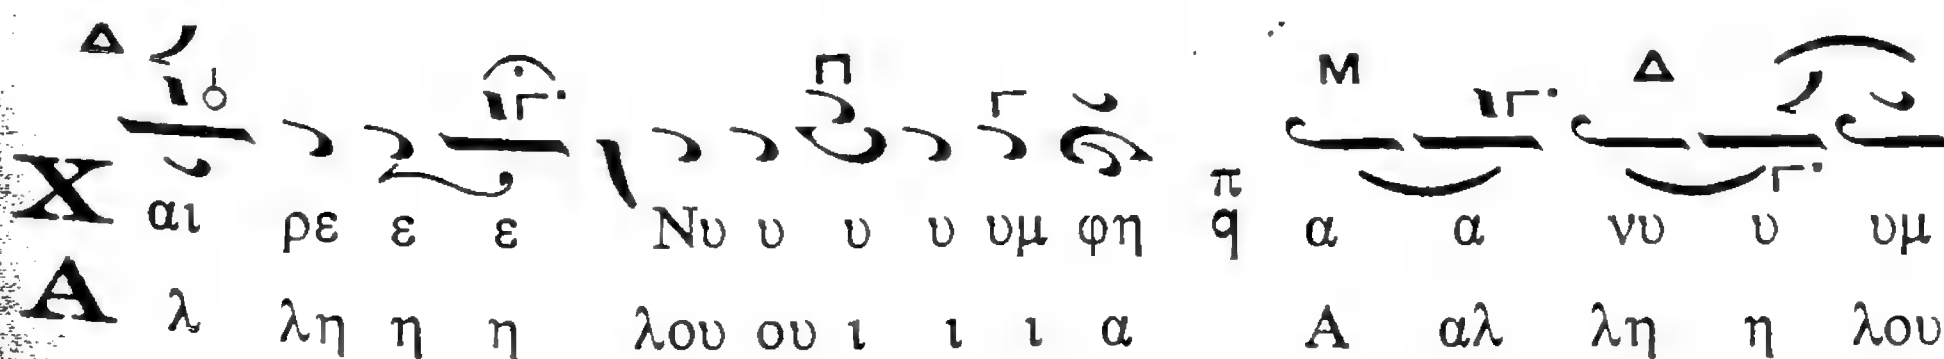 Δ Π Μ Δ
Χαι ρε ε ε Νυ υ υ υ υμ φη π q α α νυ υ υμ
Α λ λη η η λου ου ι ι ι α Α αλ λη η λου